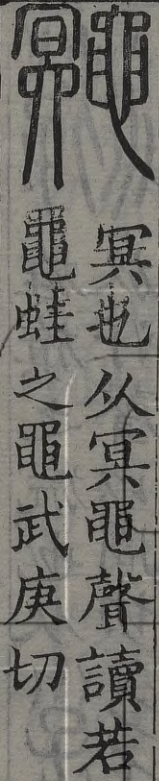 鄳
冥也从冥黽聲讀若
黽蛙之黽武庚切